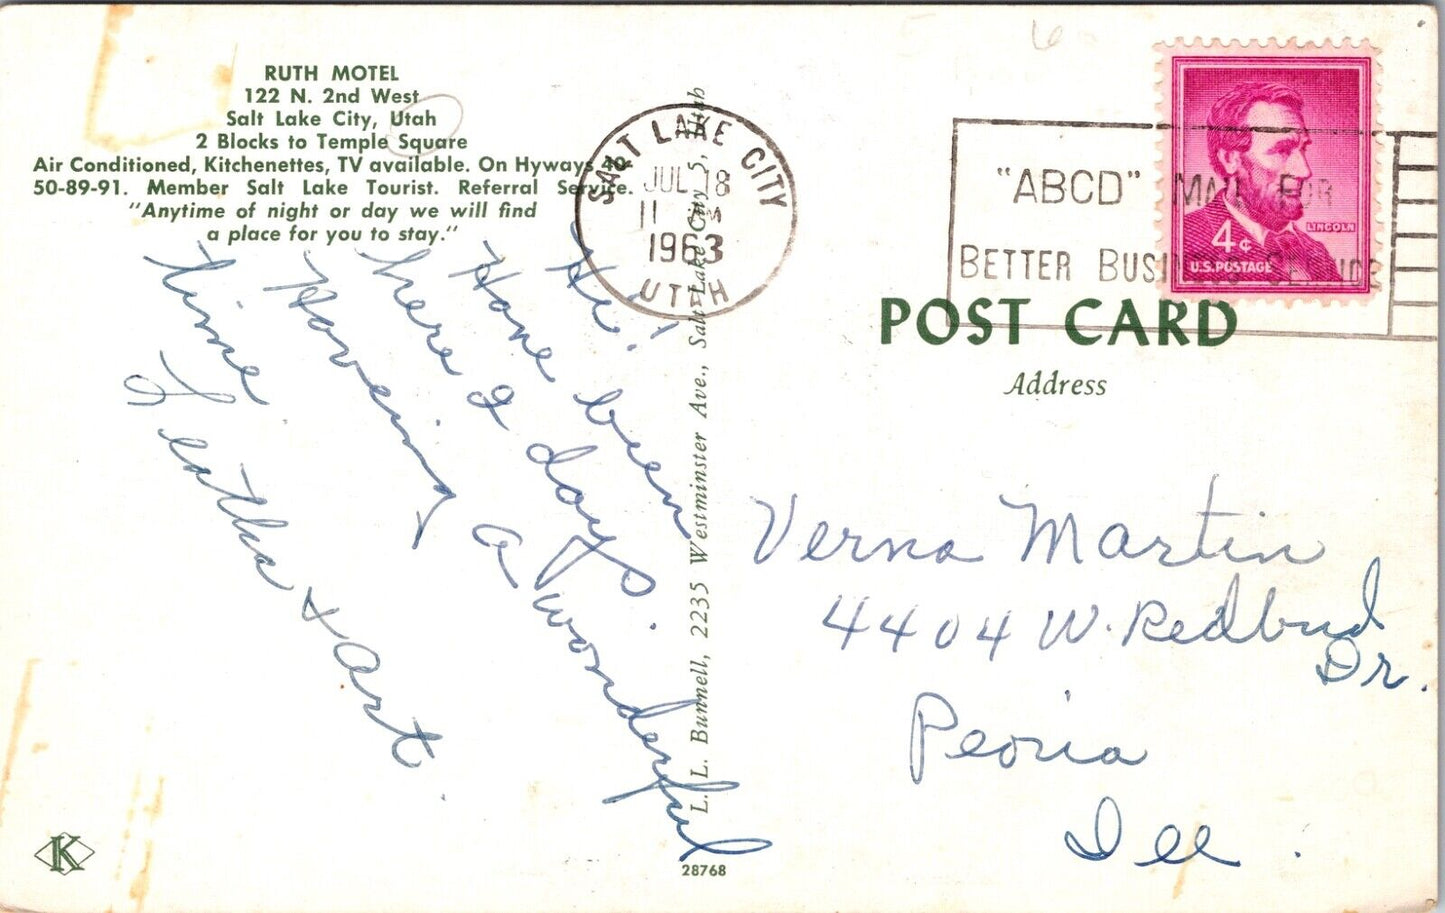 RUTH MOTEL
122 N. 2nd West
Salt Lake City, Utah
2 Blocks to Temple Square
Air Conditioned, Kitchenettes, TV available. On Hyways 40-
50-89-91. Member Salt Lake Tourist. Referral Service.
"Anytime of night or day we will find
a place for you to stay."
Hi!
Have been
here 2 days.
Having a wonderful
time
Leatha + Art
L. L. Bunnell, 2235 Westminster Ave., Salt Lake City 5, Utah
28768
K
SALT LAKE CITY
JUL 18
11 M
1963
UTAH
"ABCD" MAIL FOR
BETTER BUSINESS SERVICE
LINCOLN
4¢
U.S. POSTAGE
POST CARD
Address
Verna Martin
4404 W. Redbud
Dr.
Peoria
Ill.
6